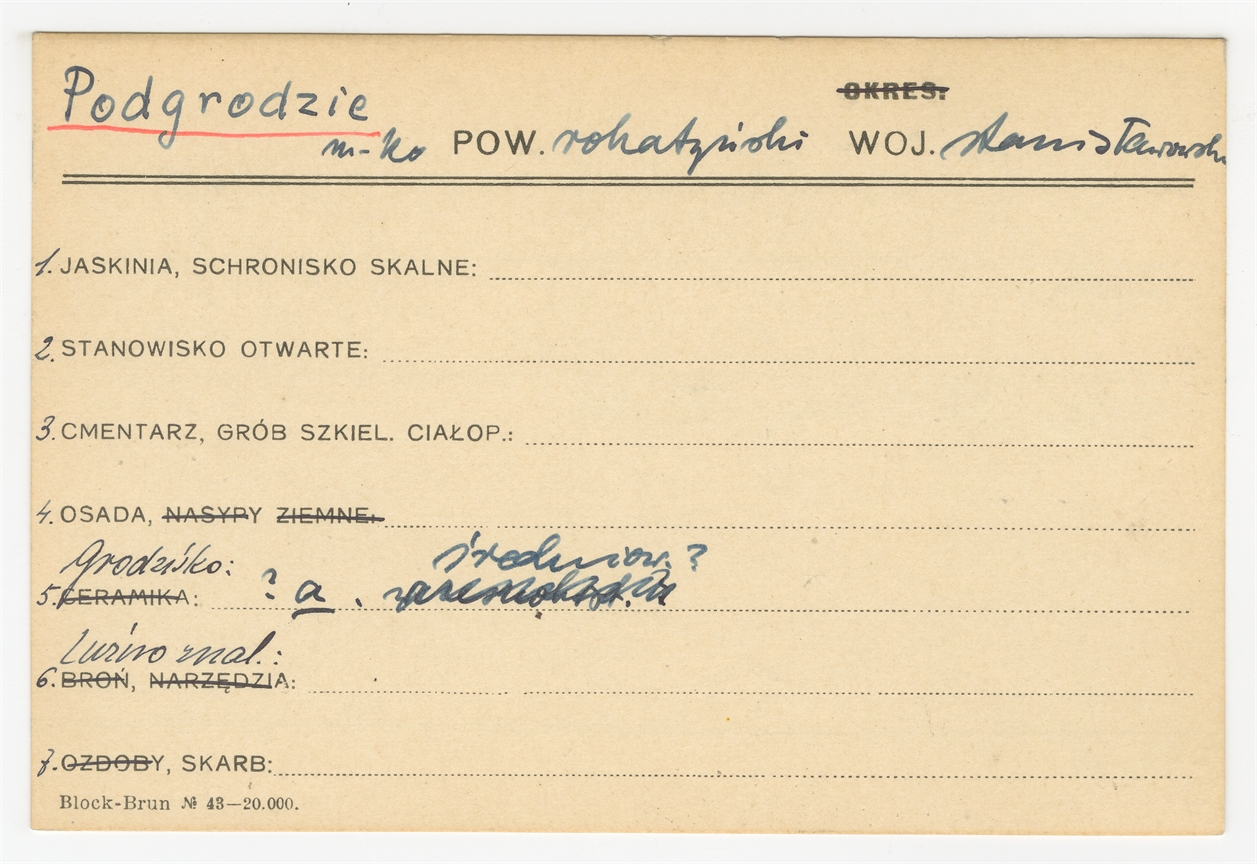 Podgrodzie
OKRES:
m-ko POW. rohatyński WOJ. stanisławowski
1. JASKINIA, SCHRONISKO SKALNE:
2. STANOWISKO OTWARTE:
3. CMENTARZ, GRÓB SZKIEL. CIAŁOP.:
4. OSADA, NASYPY ZIEMNE:
Grodzisko: średniow. ?
5. CERAMIKA: ? a .
Luźno znal.:
6. BROŃ, NARZĘDZIA:
7. OZDOBY, SKARB:
Block-Brun № 43—20.000.